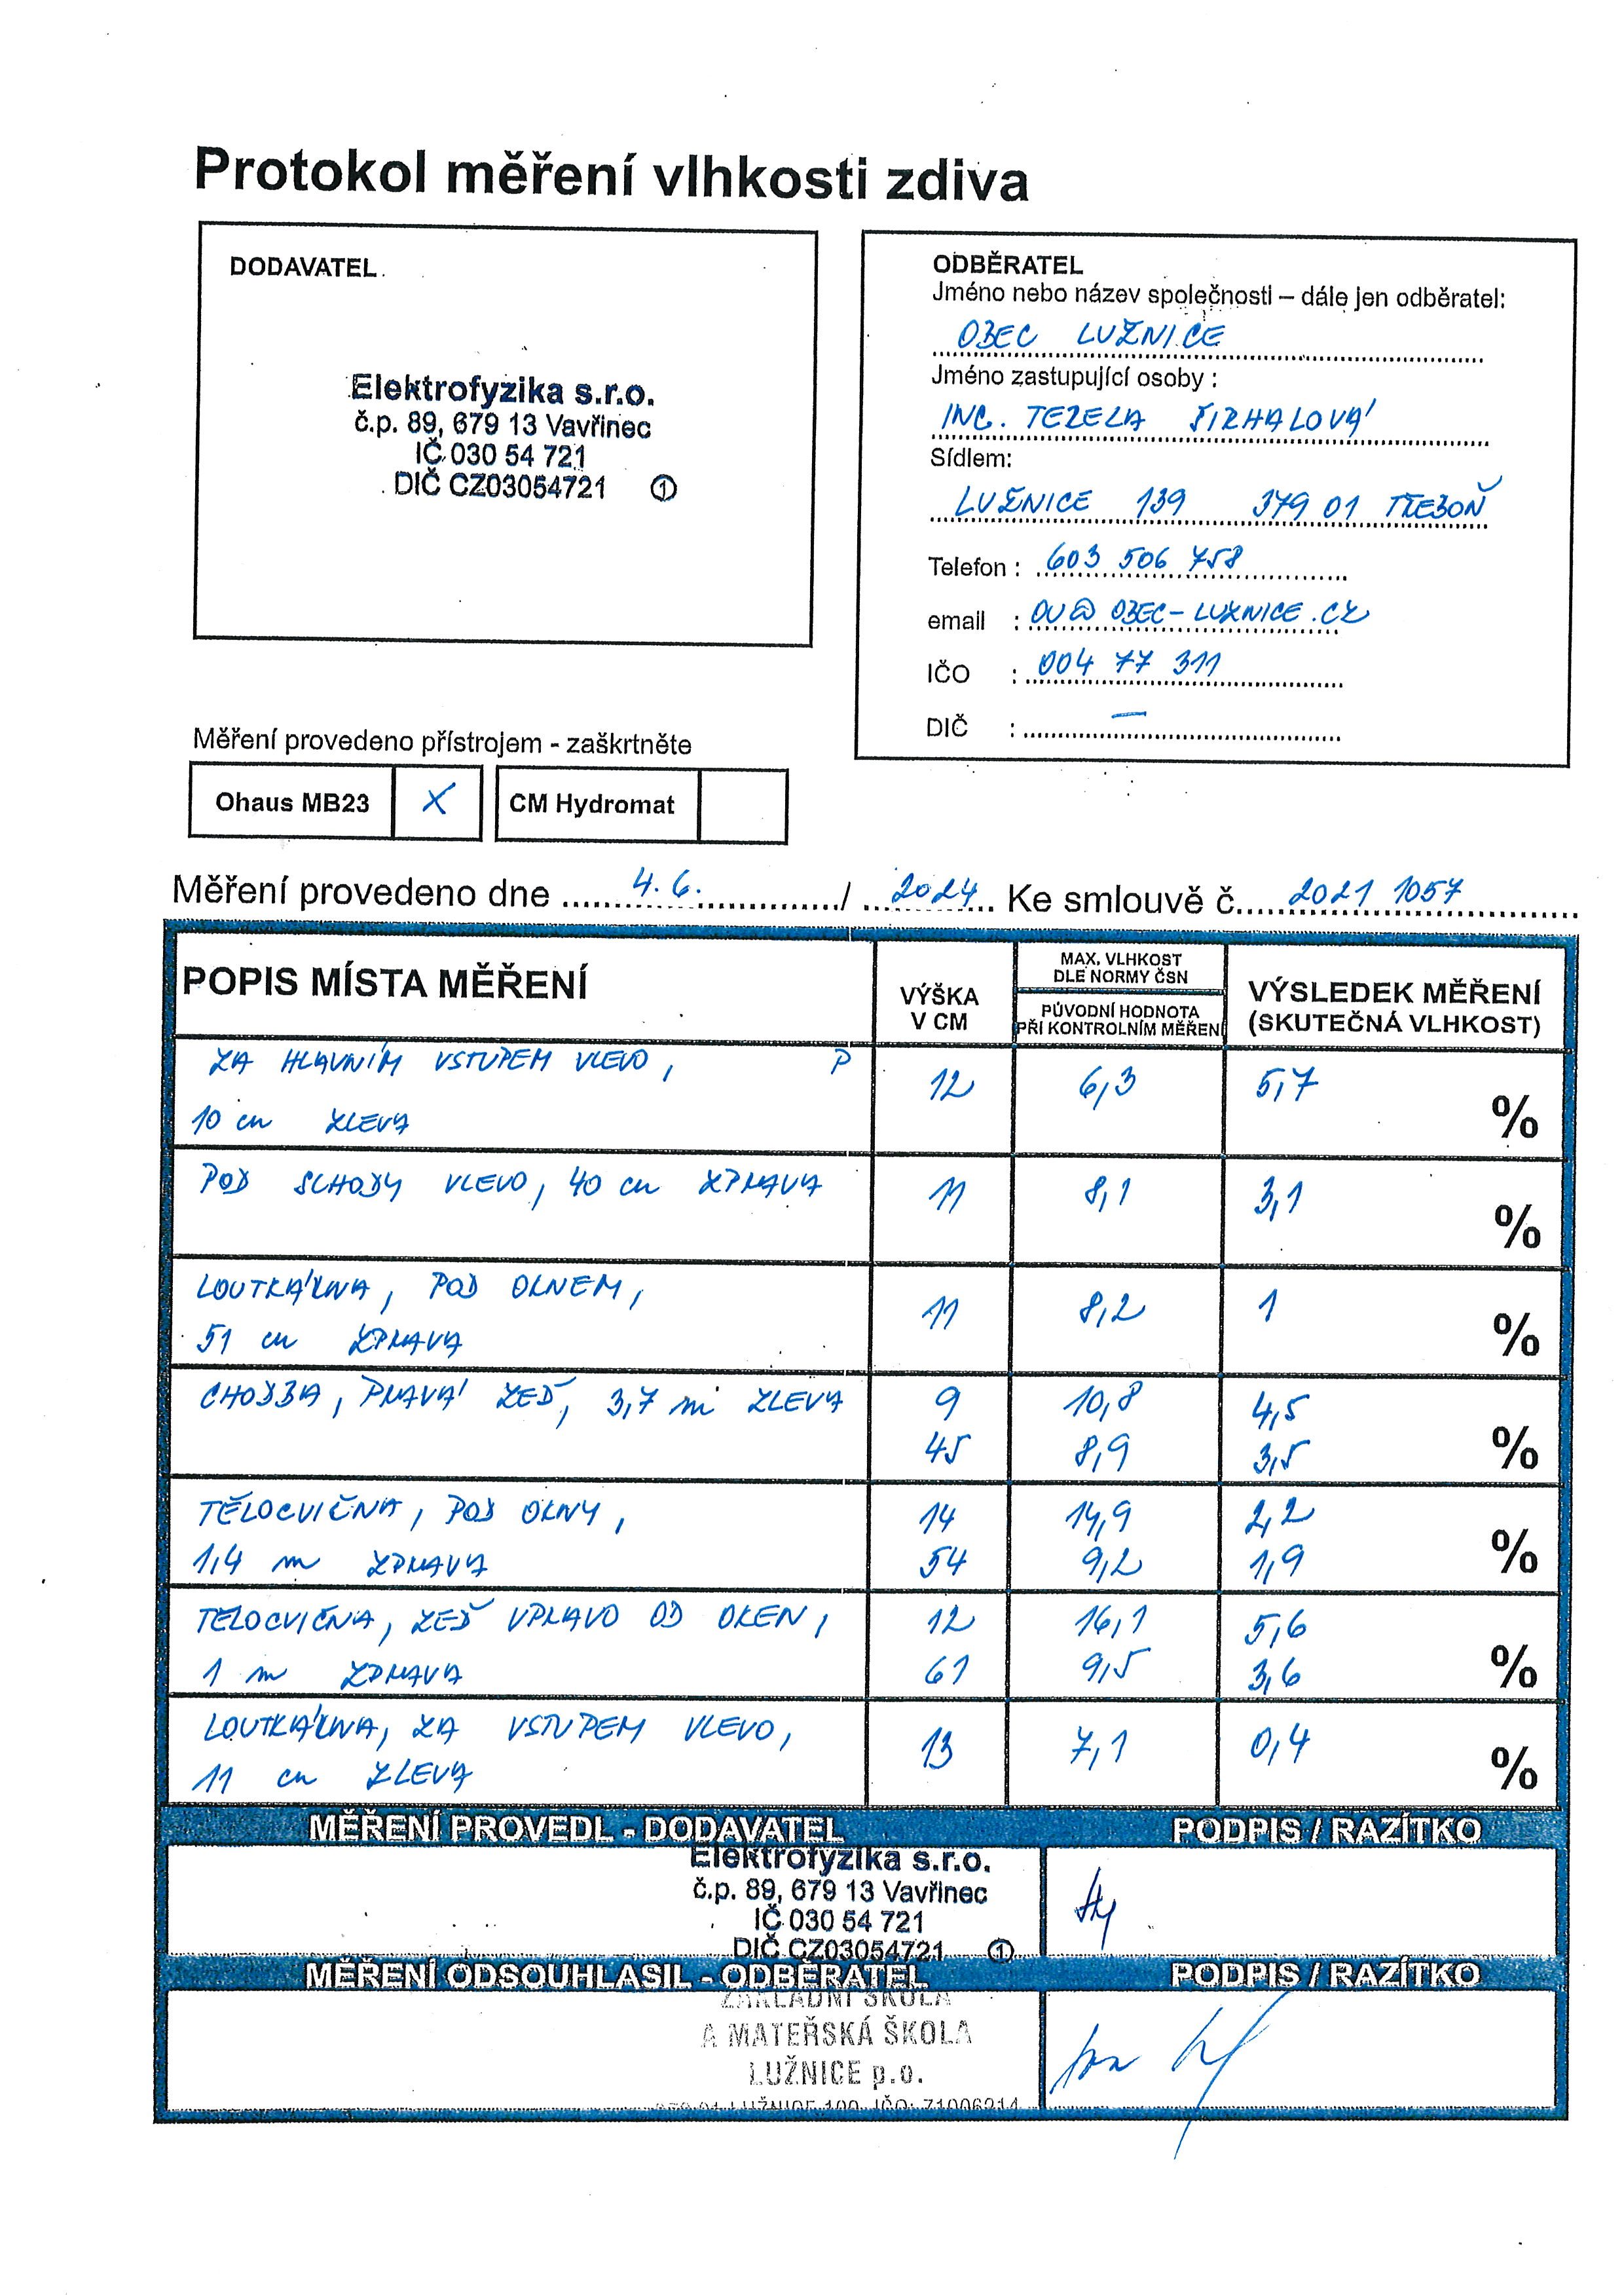 Protokol měření vlhkosti zdiva
DODAVATEL
Elektrofyzika s.r.o.
č.p. 89, 679 13 Vavřinec
IČ 030 54 721
DIČ CZ03054721 ①
ODBĚRATEL
Jméno nebo název společnosti – dále jen odběratel:
OBEC LUŽNICE
Jméno zastupující osoby :
ING. TEREZA
Sídlem:
LUŽNICE 139 379 01 TŘEBOŇ
Telefon : 603 506 758
email : OU@OBEC-LUZNICE.CZ
IČO : 004 77 311
DIČ : —
Měření provedeno přístrojem - zaškrtněte
Ohaus MB23 X CM Hydromat
Měření provedeno dne 4.6. / 2024 Ke smlouvě č. 2021 1057
POPIS MÍSTA MĚŘENÍ
VÝŠKA V CM
MAX. VLHKOST DLE NORMY ČSN
PŮVODNÍ HODNOTA PŘI KONTROLNÍM MĚŘENÍ
VÝSLEDEK MĚŘENÍ (SKUTEČNÁ VLHKOST)
ZA HLAVNÍM VSTUPEM VLEVO, P 12 6,3 5,7 %
10 cm ZLEVA
POD SCHODY VLEVO, 40 cm ZPRAVA 11 8,1 3,1 %
LOUTKÁRNA, POD OKNEM, 11 8,2 1 %
51 cm ZPRAVA
CHODBA, PRAVÁ ZEĎ, 3,7 m ZLEVA 9 10,8 4,5
45 8,9 3,5 %
TĚLOCVIČNA, POD OKNY, 14 14,9 2,2
1,4 m ZPRAVA 54 9,2 1,9 %
TĚLOCVIČNA, ZEĎ VPRAVO OD OKEN, 12 16,1 5,6
1 m ZPRAVA 61 9,5 3,6 %
LOUTKÁRNA, ZA VSTUPEM VLEVO, 13 7,1 0,4 %
11 cm ZLEVA
MĚŘENÍ PROVEDL - DODAVATEL PODPIS / RAZÍTKO
Elektrofyzika s.r.o.
č.p. 89, 679 13 Vavřinec
IČ 030 54 721
DIČ CZ03054721 ①
MĚŘENÍ ODSOUHLASIL - ODBĚRATEL PODPIS / RAZÍTKO
ZÁKLADNÍ ŠKOLA
A MATEŘSKÁ ŠKOLA
LUŽNICE p.o.
LUŽNICE 100, IČO: 71006214